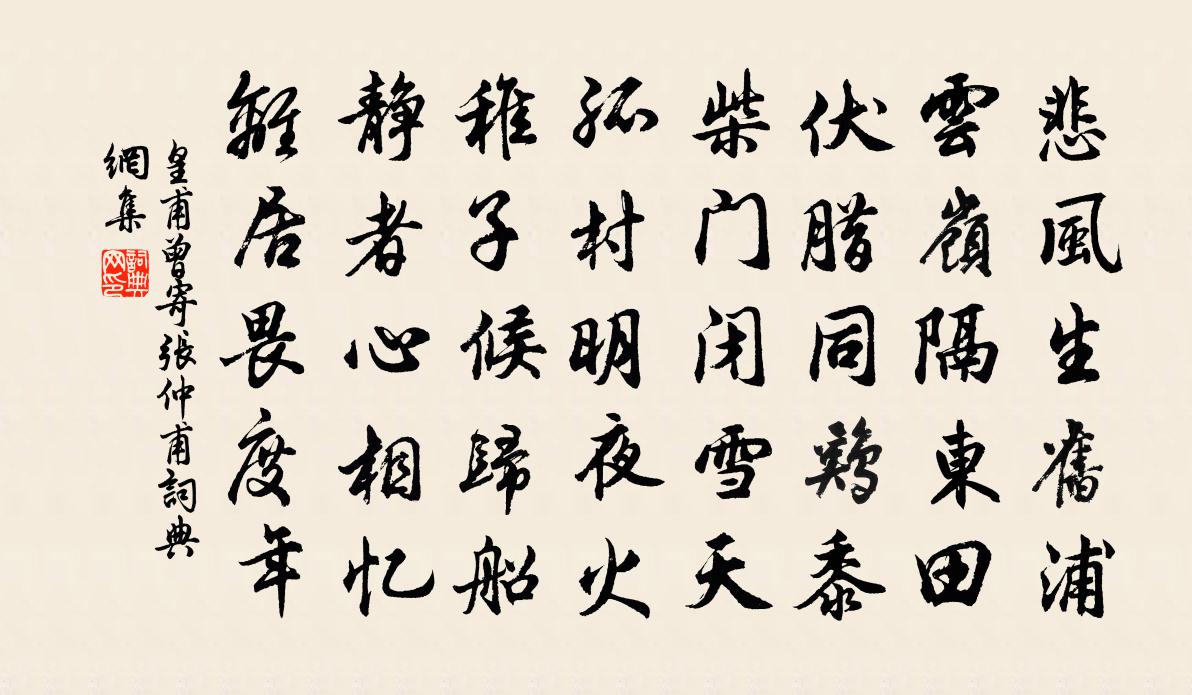 悲風生舊浦
雲嶺隔東田
伏腊同鶏黍
柴门闭雪天
孤村明夜火
稚子候歸船
靜者心相忆
離居畏度年
皇甫曾寄張仲甫詞典
網集
詞典
网印